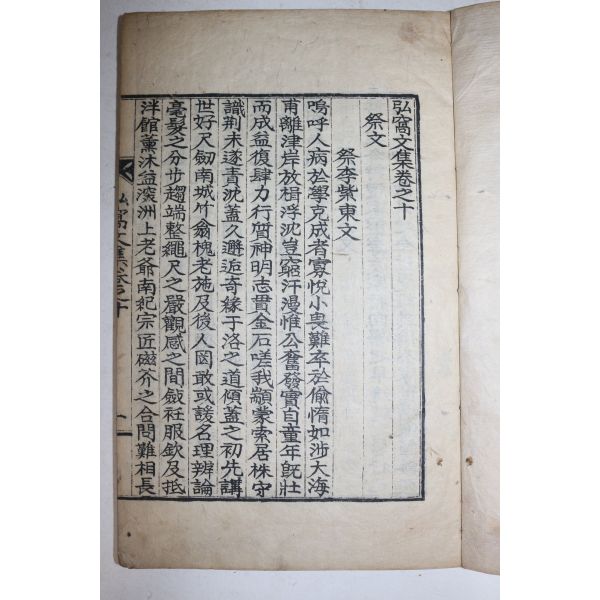 弘窩文集卷之十
祭文
祭李紫東文
嗚呼人病於學克成者寡悅小畏難卒於偸惰如涉大海
甫離津岸放楫浮沈豈窮汗漫惟公奮發實自童年旣壯
而成益復肆力行質神明志貫金石嗟我顓蒙索居株守
識荆未遂靑沈蓋久邂逅奇緣于洛之道傾蓋之初先講
世好尺劒南城竹翁槐老施及後人罔敢或諼名理辨論
毫髮之分廿趨端整繩尺之嚴觀感之間斂衽服欽及抵
泮館薰沐益深洲上老爺南紀宗匠磁芥之合問難相長
弘窩文集卷之十
一